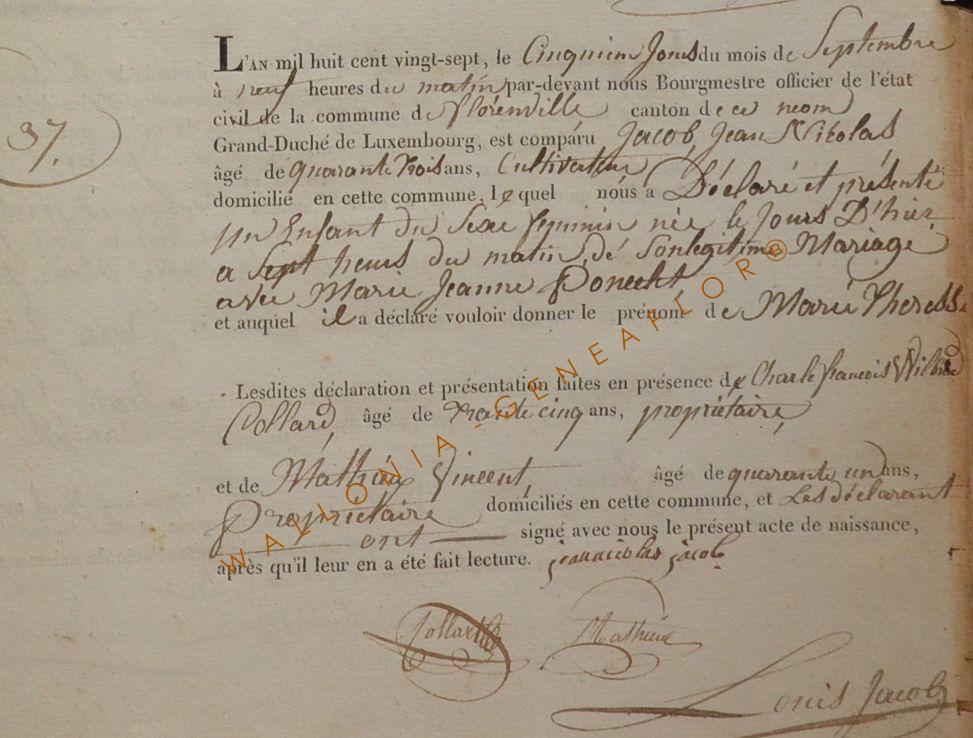 37.
L'AN mil huit cent vingt-sept, le Cinquiem Jours du mois de Septembre
à neuf heures du matin par-devant nous Bourgmestre officier de l'état
civil de la commune de florenville canton de ce neom
Grand-Duché de Luxembourg, est comparu Jacob, Jean Nicolas,
âgé de quarante trois ans, Cultivateur
domicilié en cette commune, lequel nous a Déclaré et présenté
un Enfant du Sexe feminin née le Jours D'hier
a Sept heurs du matin, dé Sonlegitime Mariage
avec Marie Jeanne Ponecht,
et auquel il a déclaré vouloir donner le prénom de Marie Theresse
Lesdites déclaration et présentation faites en présence de Charle francois
Collard, âgé de trante cinq ans, propriétaire,
et de Mathieu Vincent, âgé de quarante un ans,
Propriétaire domiciliés en cette commune, et Les déclarant
ont signé avec nous le présent acte de naissance,
après qu'il leur en a été fait lecture. jeannicolas jacob
Collard Mathieu
Louis Jacob
WALLONIA - GENEAFLOR®